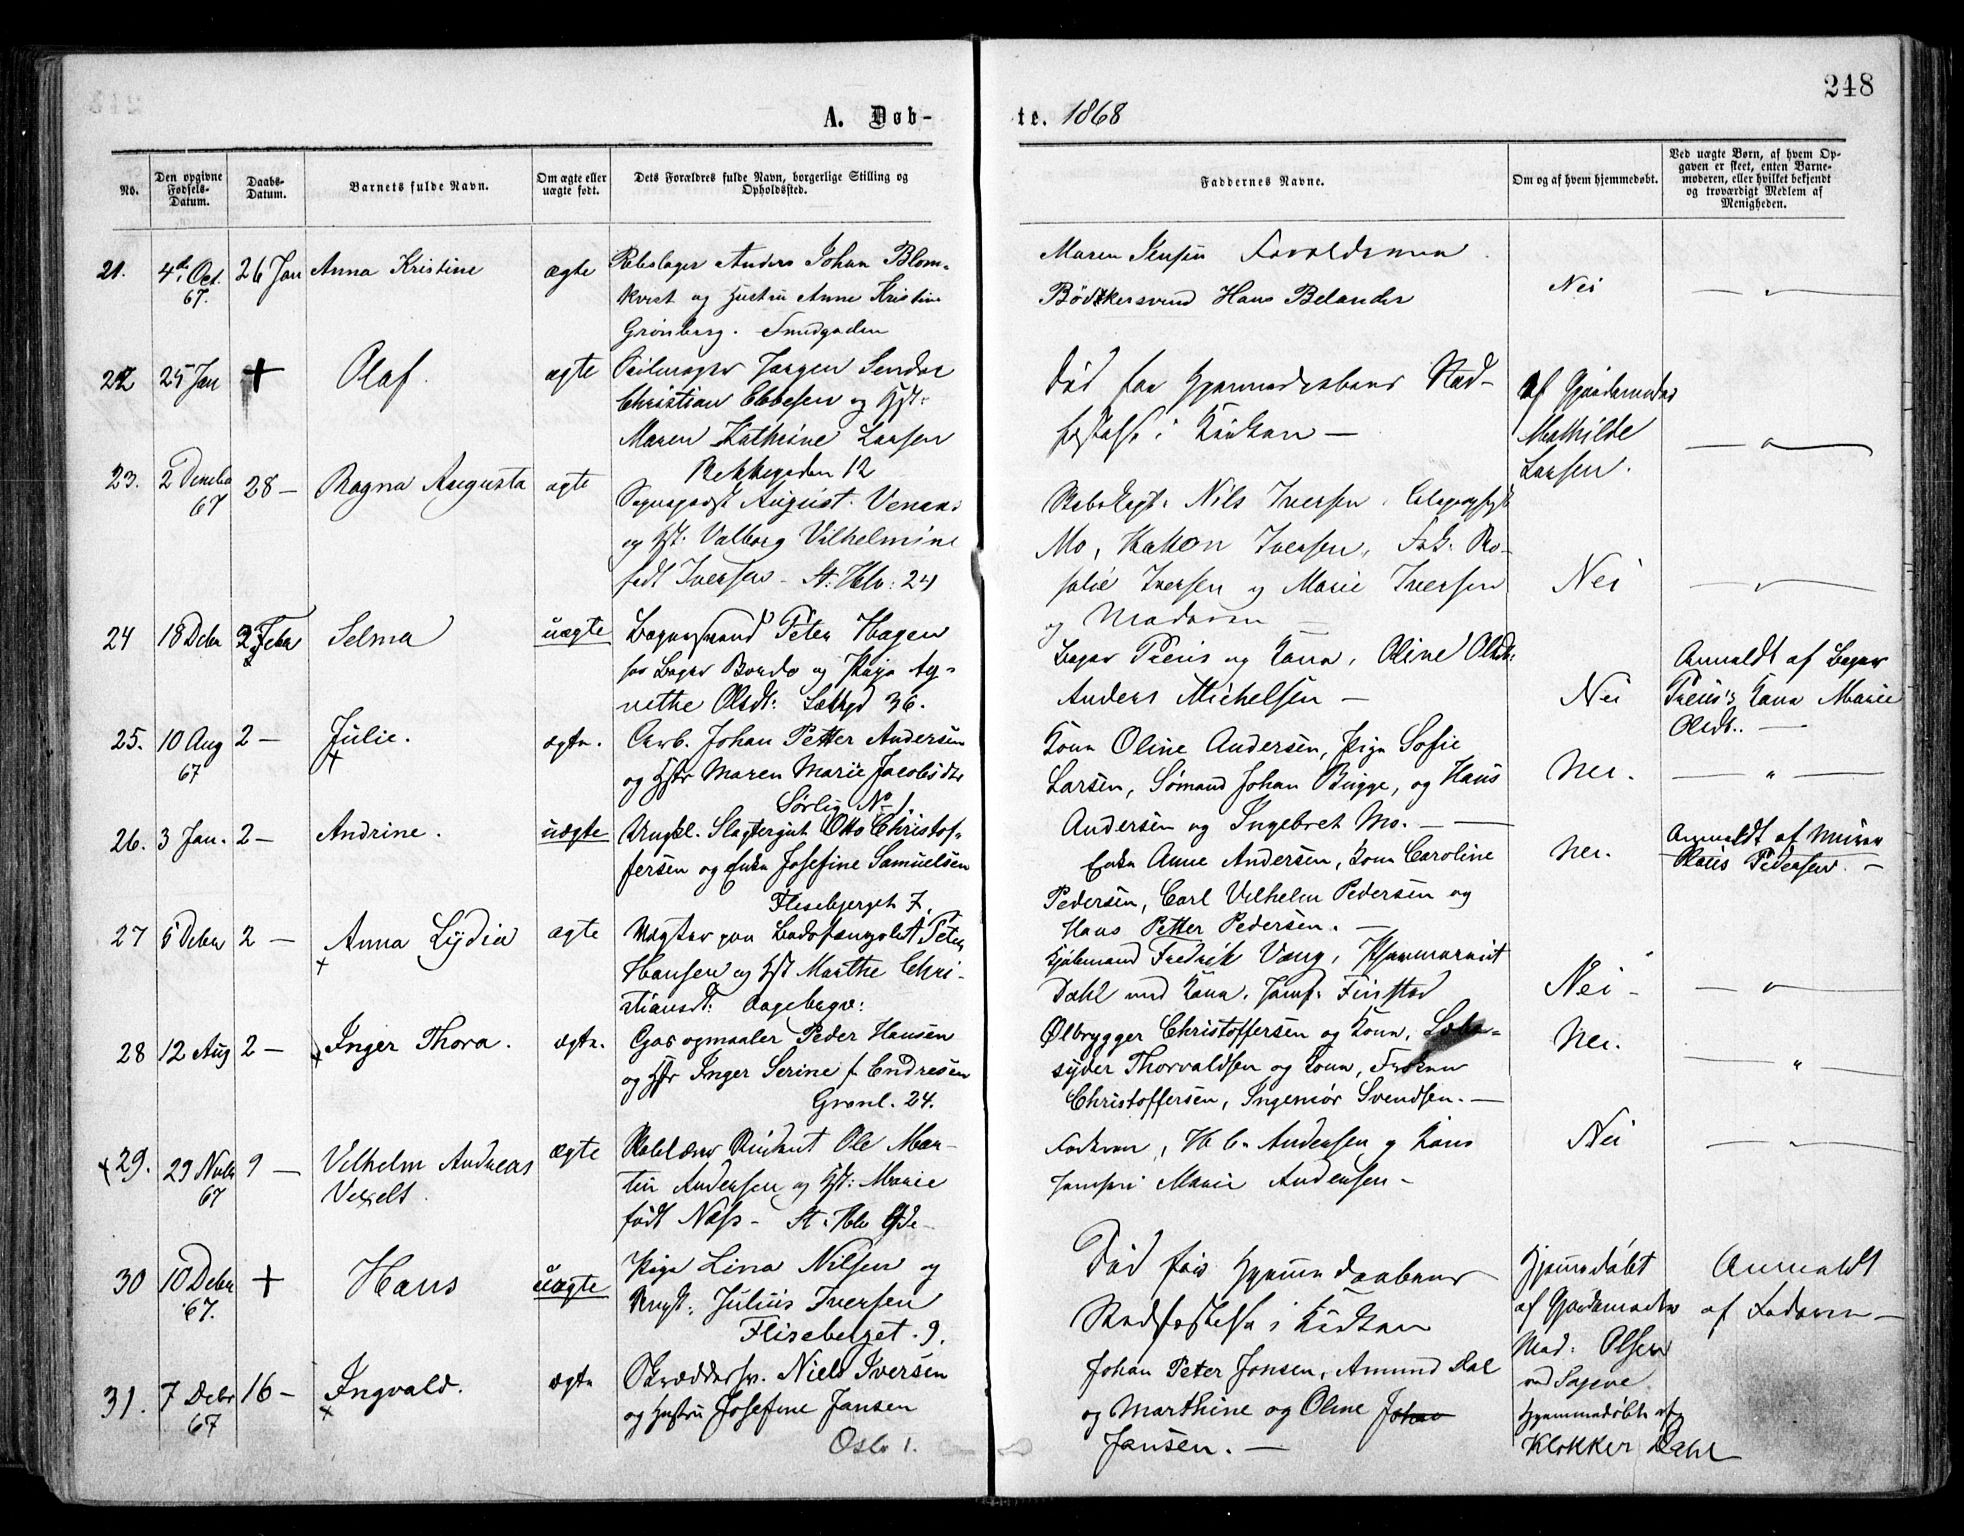 248
A. Døb-
te. 1868
No.
Den opgivne Fødsels-Datum.
Daabs-Datum.
Barnets fulde Navn.
Om ægte eller uægte født.
Dets Forældres fulde Navn, borgerlige Stilling og Opholdssted.
Faddernes Navne.
Om og af hvem hjemmedøbt.
Ved uægte Børn, af hvem Opgaven er skeet, enten Barnemoderen, eller hvilket bekjendt og troværdigt Medlem af Menigheden.
21. 4de Oct. 67. 26 Jan Anna Kristine ægte Rebslager Anders Johan Blom-
kvist og Hustru Anne Kristine
Grönberg. Smedgaden
Maren Jensen
Bödkersvend Hans Belander
Nei
22 25 Jan + Olaf. ægte Jørgen Sendar
Christian Ebbesen og Hst:
Maren Kathrine Larsen
Rekkegaden 12
Död før Hjemmedaabens Stad-
fæstelse i Kirken —
af Gjordemoder
Mathilde
Larsen.
23. 2 Decbr 67 28 — Ragna Augusta ægte August
og Hst: Valborg Vilhelmine
født Iversen — St: Hlv: 24
Nils Iversen,
Mo, Hakon Iversen, Frk: Ro-
salie Iversen og Marie Iversen
og Moderen —
Nei
24 18 Decbr 2 Febr Selma uægte Bagersvend Peter Hagen
hos Bager Borde og Pige Ag-
nethe Olsdt: 36.
Bager Preus og Kone, Oline Olsdt:
Anders Michelsen —
Nei
Anmeldt af Bager
Preus's Kone Marie
Olsdt. —
25. 10 Aug 67 2 — Julie. ægte. Arb. Johan Petter Andersen
og Hstr Maren Marie Jacobsdtr
Sørlig No 1.
Kone Oline Andersen, Pige Sofie
Larsen, Sömand Johan Bugge, og Hans
Andersen og Ingebret Mo. —
Nei.
26. 3 Jan. 2 — Andrine. uægte Ungkl. Slagtergut Otto Christof-
fersen og Enke Josefine Samuelsen
Flisebjerget 7.
Enke Anne Andersen, Kone Caroline
Pedersen, Carl Vilhelm Pedersen og
Hans Petter Pedersen. —
Nei.
Anmeldt af Murer
Pedersen. —
27 5 Decbr 2 — Anna Lydia ægte Vægter paa Bodsfængslet Peter
Hansen og Hst Marthe Chri-
stiansdt: Aagebergv:
Fredrik Væng,
Dahl med Kone, Jomf: Finstad
Nei —
28 12 Aug 2 — Inger Thora. ægte. Gasopmaaler Peder Hansen
og Hstr Inger Serine f Endresen
Grönl. 24.
Ølbrygger Christoffersen og Kone,
Thorvaldsen og Kone, Frøken
Christoffersen, Ingeniør Svendsen. —
Nei.
29. 29 Novbr 67 9 — Vilhelm Andreas
ægte Ole Mar-
tin Andersen og Hst: Marie
født Næss —
Faderen, H C. Andersen og Kone
Jomfru Marie Andersen —
Nei
30 10 Decbr 67. + Hans uægte Pige Lina Nilsen og
Ungk: Julius Iversen
Fliseberget. 9.
Död før Hjemmedaabens
Stadfæstelse i Kirken
Hjemmedøbt
af Gjordemoder
Mad: Olsen
ved Sagene
Anmeldt
af Faderen —
31. 7 Decbr 67 16 — Ingvald. ægte Skrædersv. Niels Iversen
og Hustru Josefine Jansen
Oslo 1.
Johan Peter Jonsen, Amund Dal
og Marthine og Oline Johan
Jansen. —
Hjemmedøbt af
Klokker Dahl